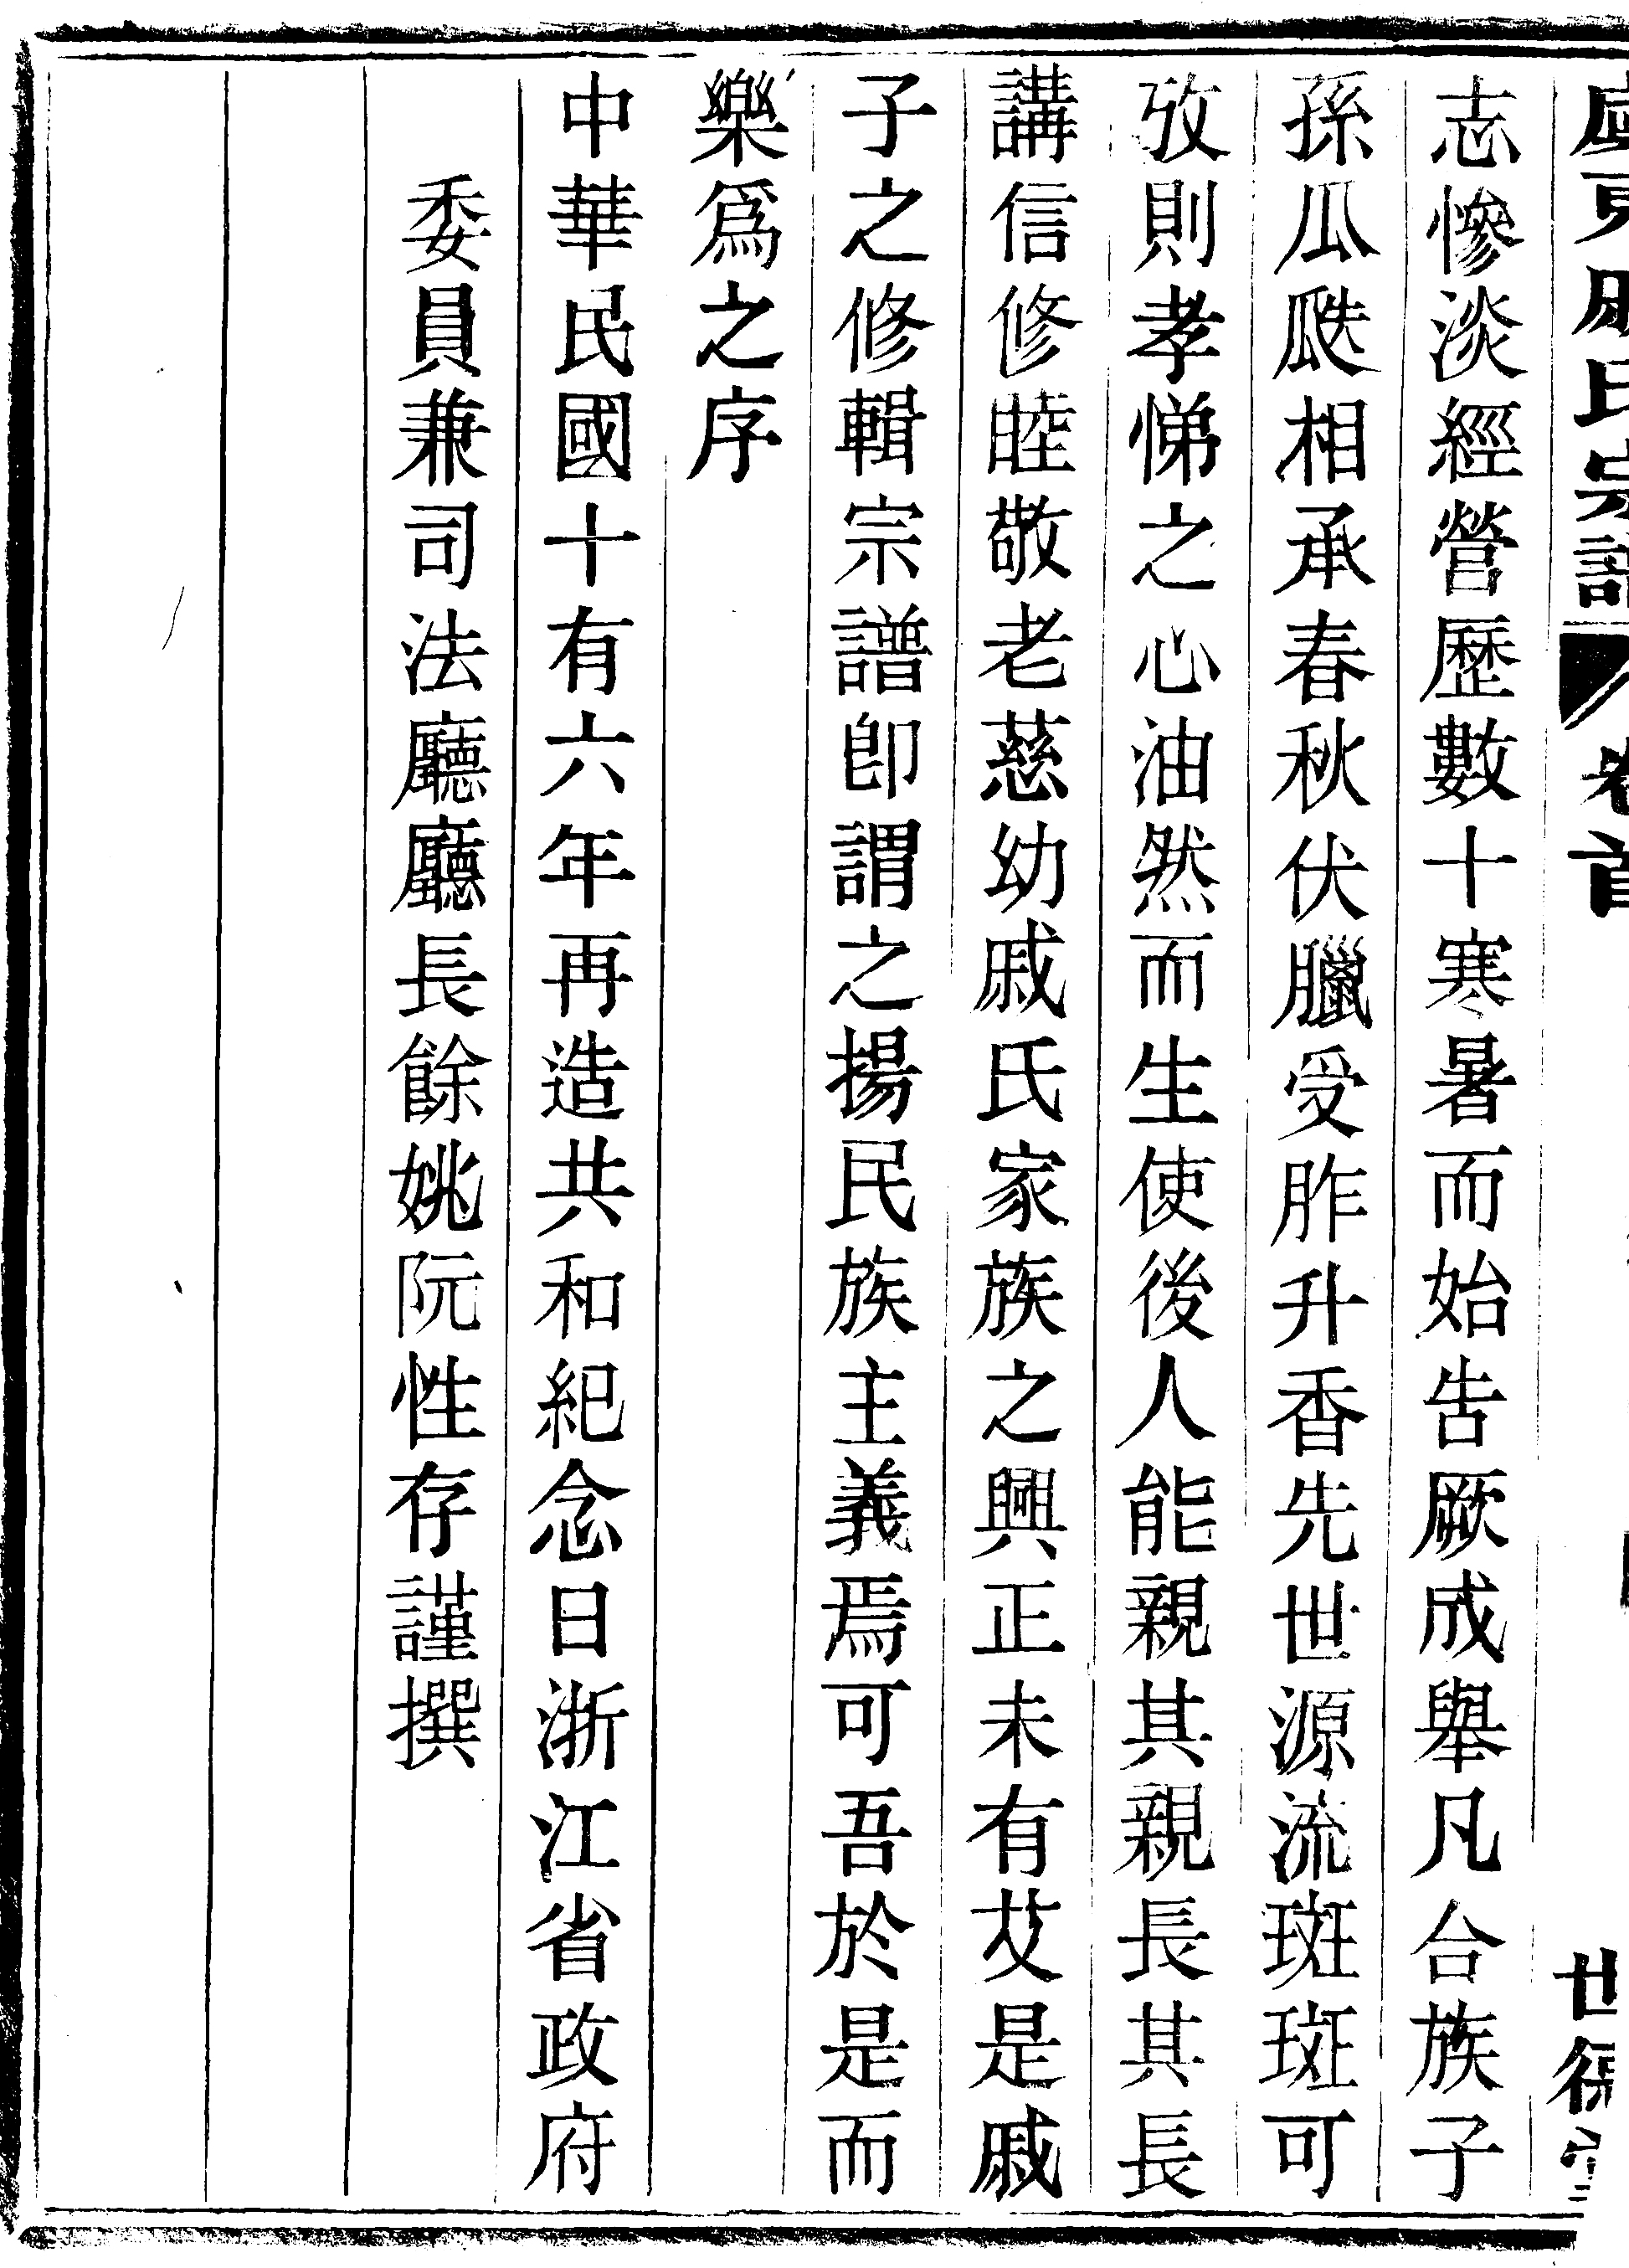 氏宗譜 卷首 世
志慘淡經營歷數十寒暑而始告厥成舉凡台族子
孫瓜瓞相承春秋伏臘受胙升香先世源流斑斑可
攷則孝悌之心油然而生使後人能親其親長其長
講信修睦敬老慈幼戚氏家族之興正未有艾是戚
子之修輯宗譜卽謂之揚民族主義焉可吾於是而
樂爲之序
中華民國十有六年再造共和紀念日浙江省政府
委員兼司法廳廳長餘姚阮性存謹撰